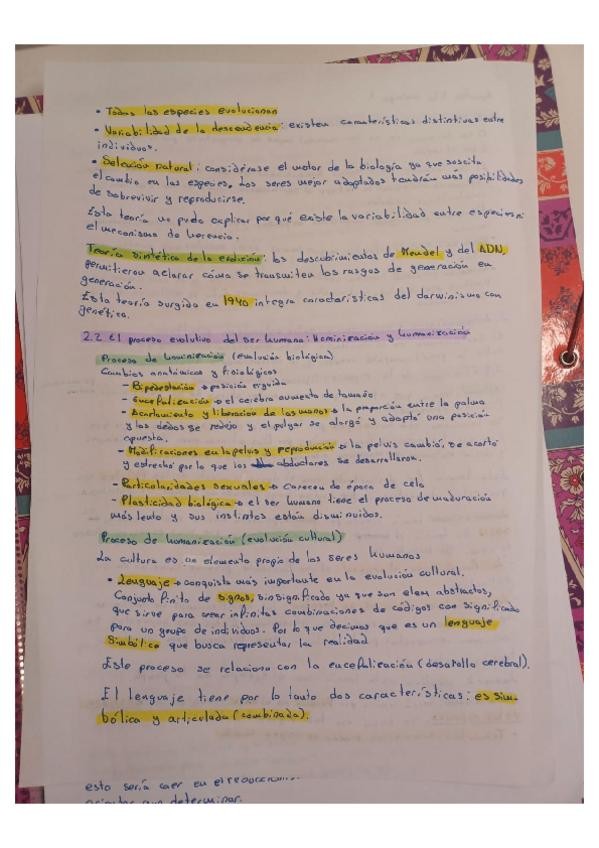 • Todas las especies evolucionan
• Variabilidad de la descendencia: existen características distintivas entre
individuos.
• Selección natural: considérase el motor de la biología ya que suscita
el cambio en las especies. Los seres mejor adaptados tendrán más posibilidades
de sobrevivir y reproducirse.
Esta teoría no pudo explicar por qué existe la variabilidad entre especies ni
el mecanismo de herencia.
Teoría sintética de la evolución: los descubrimientos de Mendel y del ADN,
permitieron aclarar cómo se transmiten los rasgos de generación en
generación.
Esta teoría surgida en 1940 integra características del darwinismo con
genética.
2.2 El proceso evolutivo del ser humano: Hominización y humanización
Proceso de hominización (evolución biológica)
Cambios anatómicos y fisiológicos
- Bipedestación → posición erguida
- Encefalización → el cerebro aumenta de tamaño
- Acortamiento y liberación de las manos → la proporción entre la palma
y los dedos se redujo y el pulgar se alargó y adaptó una posición
opuesta.
- Modificaciones en la pelvis y reproducción → la pelvis cambió, se acortó
y estrechó por lo que los abductores se desarrollaron.
- Particularidades sexuales → carecen de época de celo
- Plasticidad biológica → el ser humano tiene el proceso de maduración
más lento y sus instintos están disminuidos.
Proceso de humanización (evolución cultural)
La cultura es un elemento propio de los seres humanos
• Lenguaje → conquista más importante en la evolución cultural.
Conjunto finito de signos, sin significado ya que son elem abstractos,
que sirve para crear infinitas combinaciones de códigos con significado
para un grupo de individuos. Por lo que decimos que es un lenguaje
simbólico que busca representar la realidad
Este proceso se relaciona con la encefalización (desarollo cerebral).
El lenguaje tiene por lo tanto dos características: es sim-
bólica y articulada (combinada).
esto sería caer en el
que determinar.